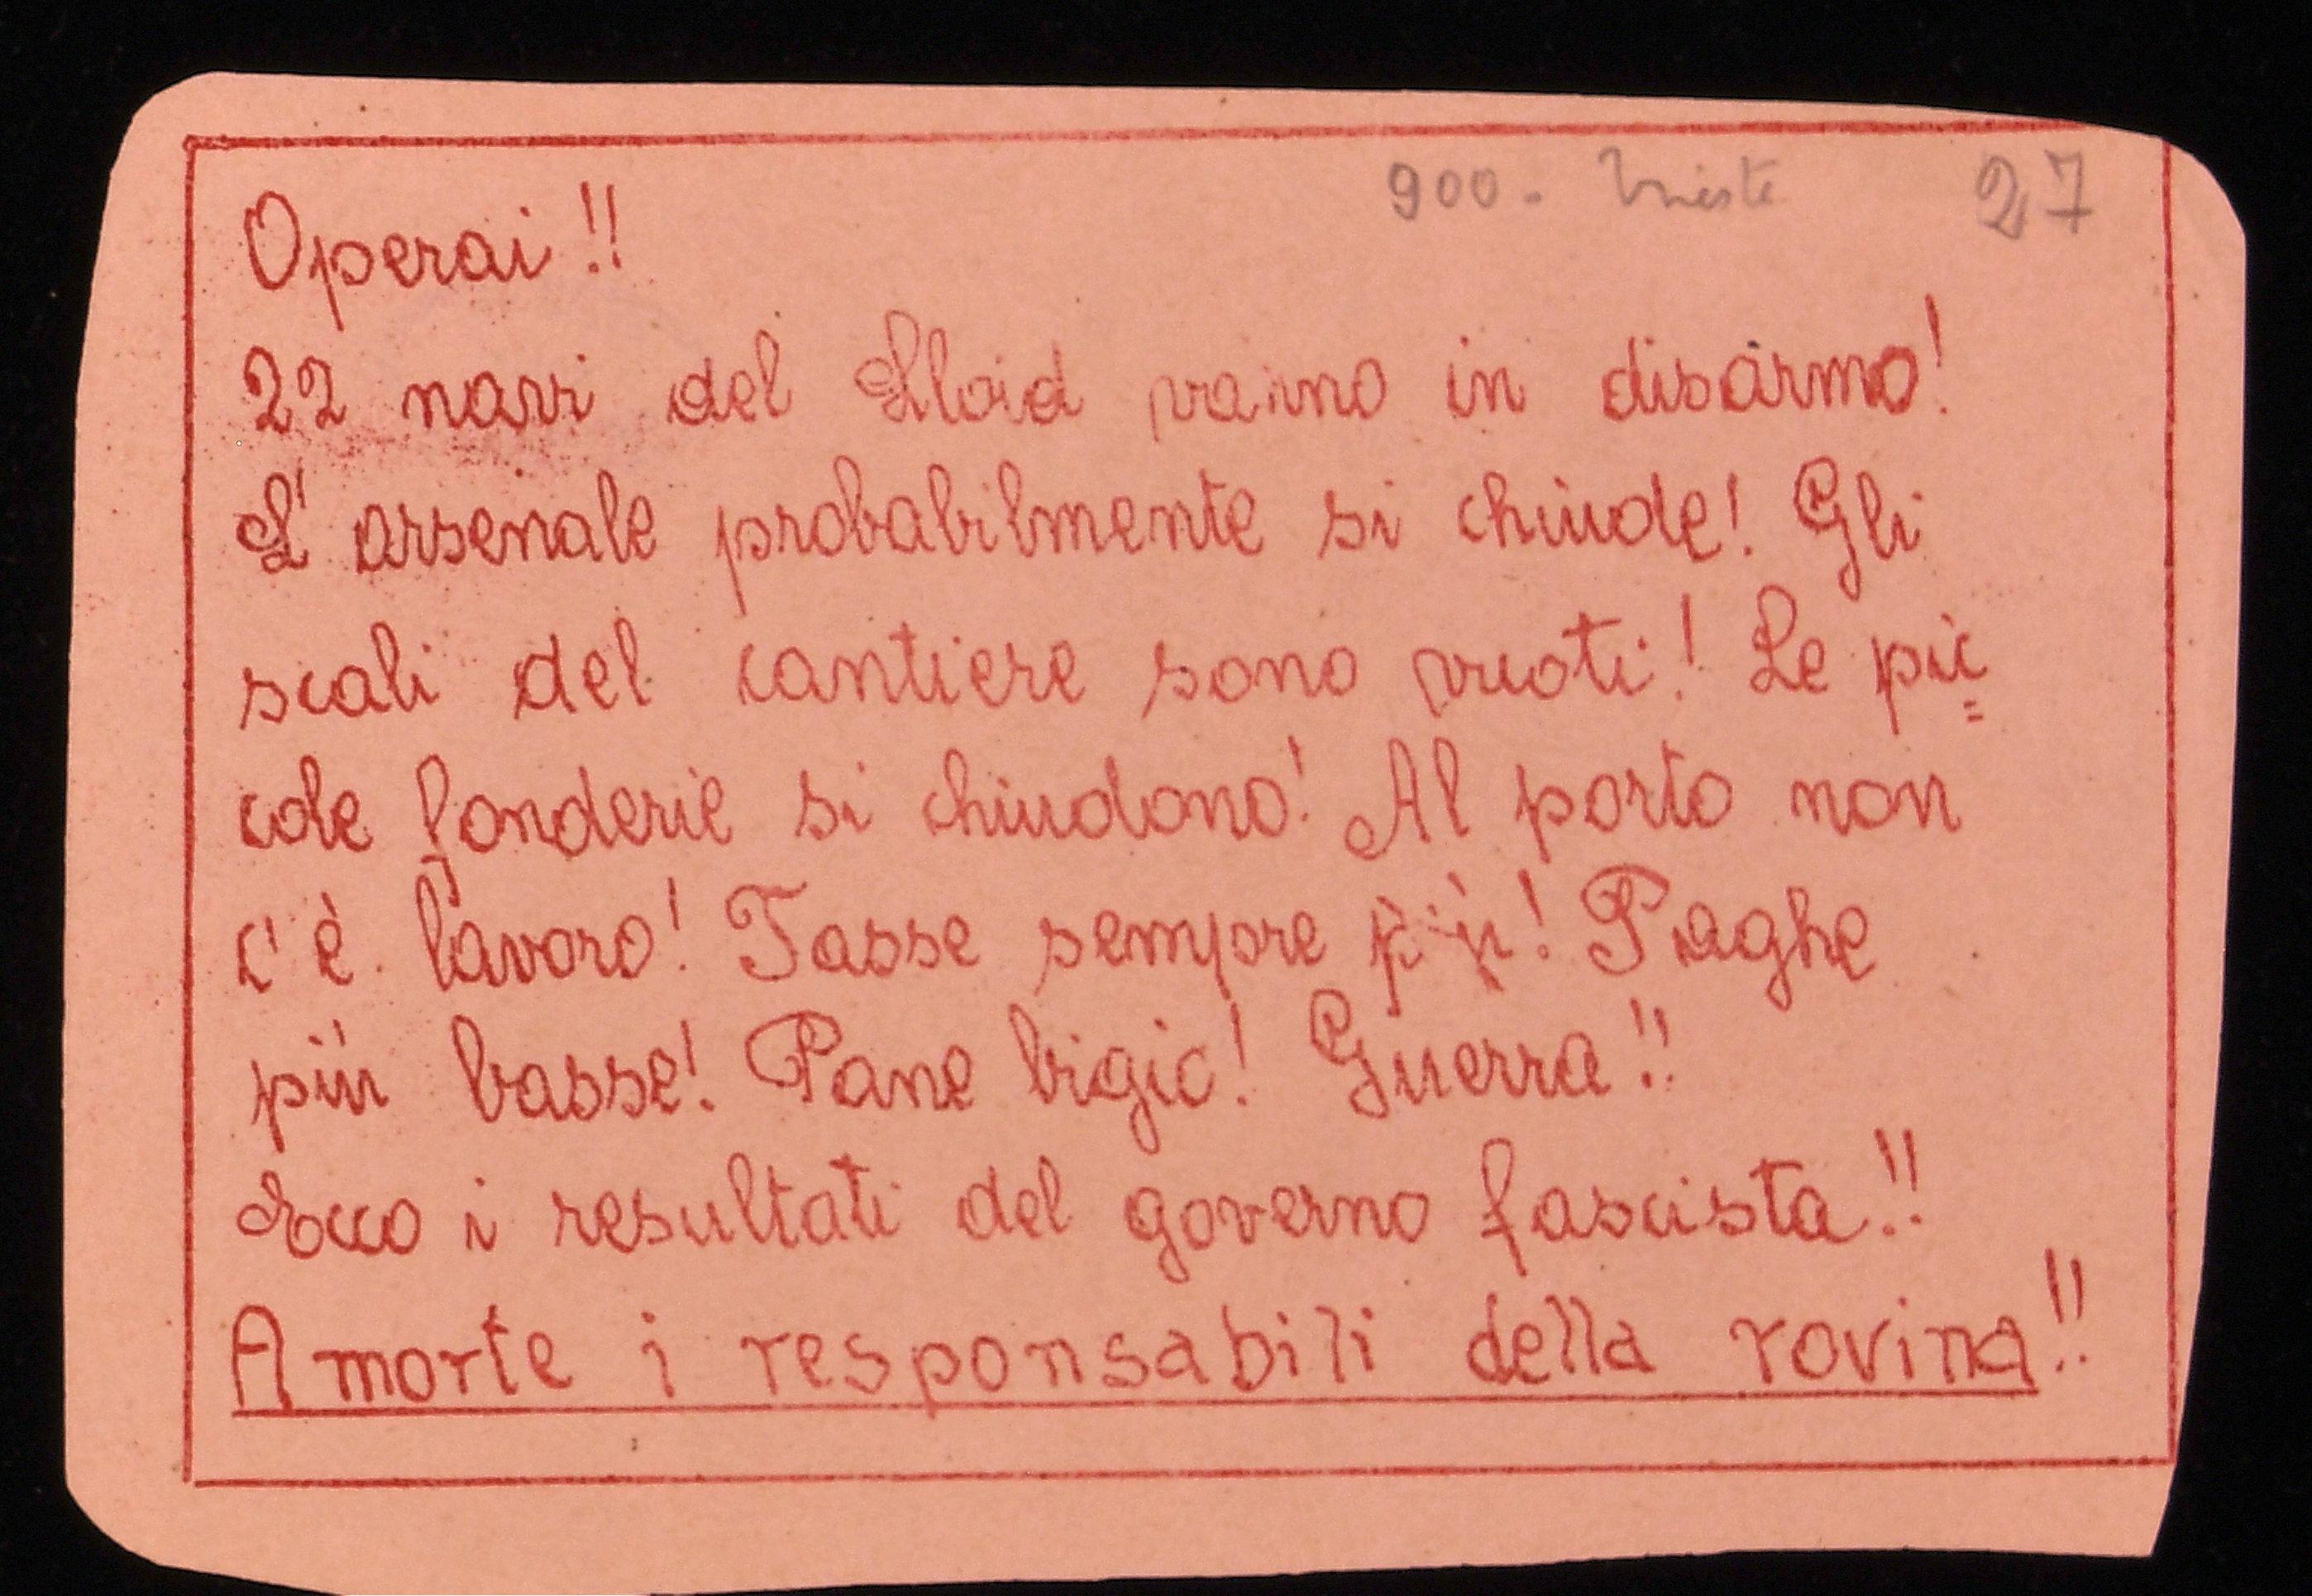 900 - Trieste 27
Operai!!
22 navi del Lloid vanno in disarmo!
L'arsenale probabilmente si chiude! Gli
scali del cantiere sono vuoti! Le pic=
cole fonderie si chiudono! Al porto non
c'è lavoro! Tasse sempre più! Paghe
più basse! Pane bigio! Guerra!!
Ecco i resultati del governo fascista!!
A morte i responsabili della rovina!!